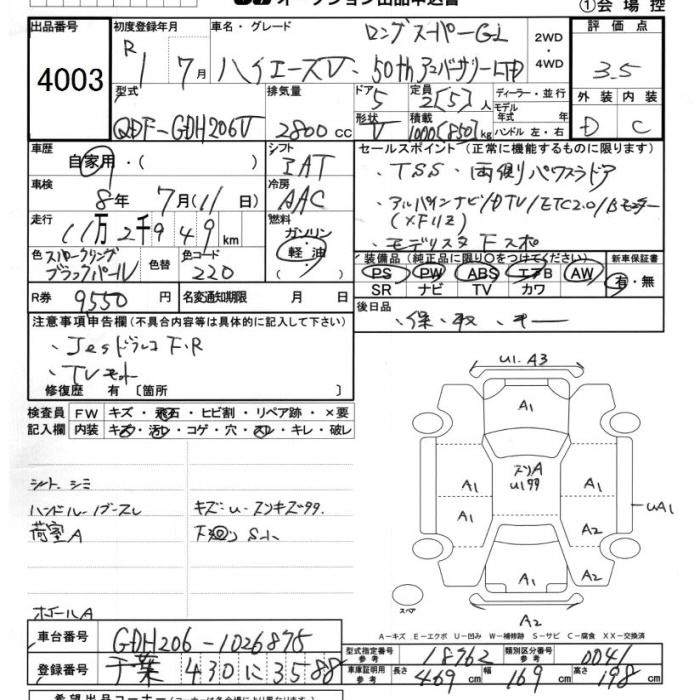 オークション出品申込書
①会場控
出品番号
4003
初度登録年月
R 1 7月
車名・グレード
ロングスーパーGL
ハイエースV・50thアニバーサリーLTD
2WD・4WD
評価点
3.5
外装 内装
D C
型式
QDF-GDH206V
排気量
2800cc
ドア
5
形状
V
定員
2[5]人
積載
1000[850]kg
ディーラー・並行
モデル年式 年
ハンドル 左・右
車歴
自家用・( )
シフト
IAT
車検
8年7月(11日)
冷房
AAC
走行
11万2千949km
燃料
ガソリン
軽油
( )
色
スパークリングブラックパール
色替
色コード
220
R券
9550円
名変通知期限 月 日
セールスポイント(正常に機能するものに限ります)
・TSS・両側パワスラドア
・アルパインナビ/DTV/ETC2.0/Bモニター
(XF11Z)
・モデリスタFスポ
装備品(純正品に限り○をつけてください)
PS PW ABS エアB AW
SR ナビ TV カワ
新車保証書
有・無
後日品
・保・取・キー
注意事項申告欄(不具合内容等は具体的に記入して下さい)
・JesドラレコF・R
・TVキット
修復歴 有〔箇所 〕
検査員記入欄
FW キズ・飛石・ヒビ割・リペア跡・×要
内装 キズ・汚レ・コゲ・穴・スレ・キレ・破レ
シート、シミ
ハンドル・ブースレ
荷室A
キズ・U・スリキズ99.
下回りSι
ホイールA
U1.A3
A1
スリA
U199
A1
A1
A1
UA1
A2
A1
A2
スペア
A2
A-キズ E-エクボ U-凹み W-補修跡 S-サビ C-腐食 XX-交換済
車台番号
GDH206-1026875
登録番号
千葉430に3588
型式指定番号
参考
18762
類別区分番号
参考
0041
車庫証明用
参考
長さ469cm 幅169cm 高さ198cm
希望出品コーナー